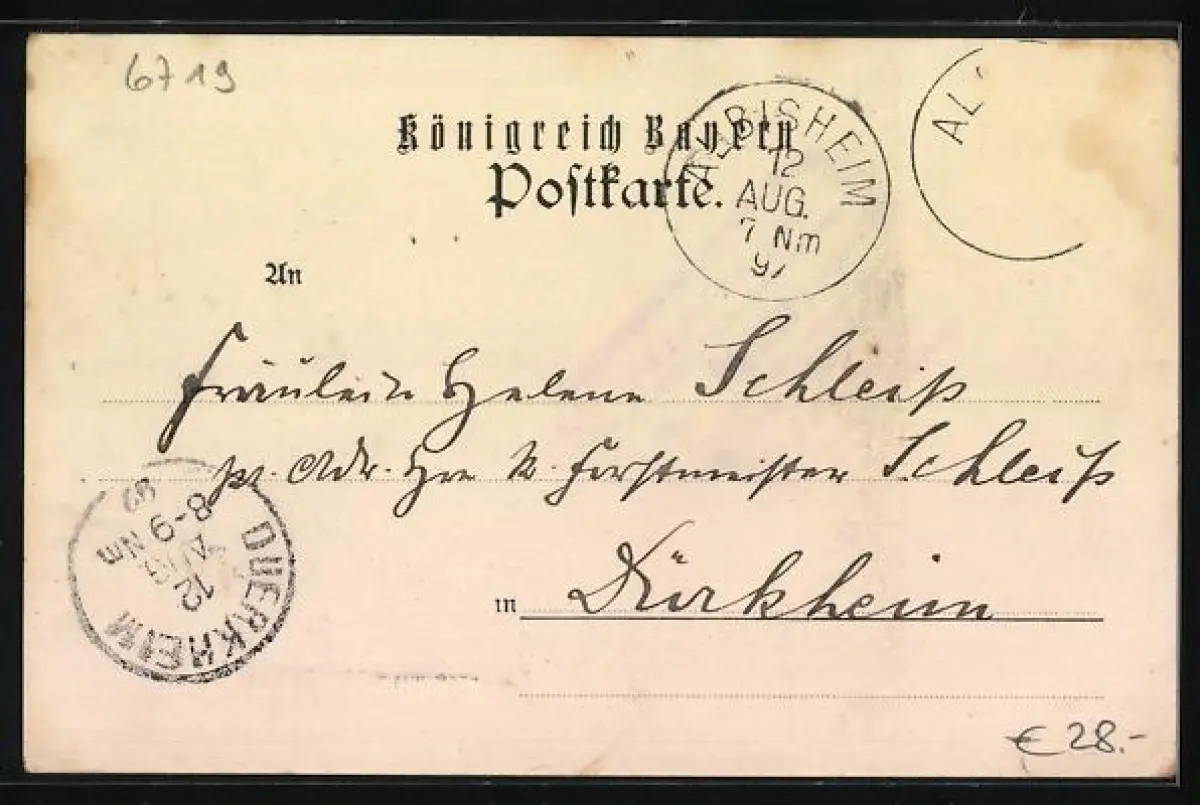 6719
Königreich Bayern
Postkarte.
ALBISHEIM
12
AUG.
7 Nm
97
AL
An
Fräulein Helene Schleiß
pr. Adr. Hrn K. Forstmeister Schleiß
in Dürkheim
DUERKHEIM
12
AUG
8-9 NM
€ 28.-